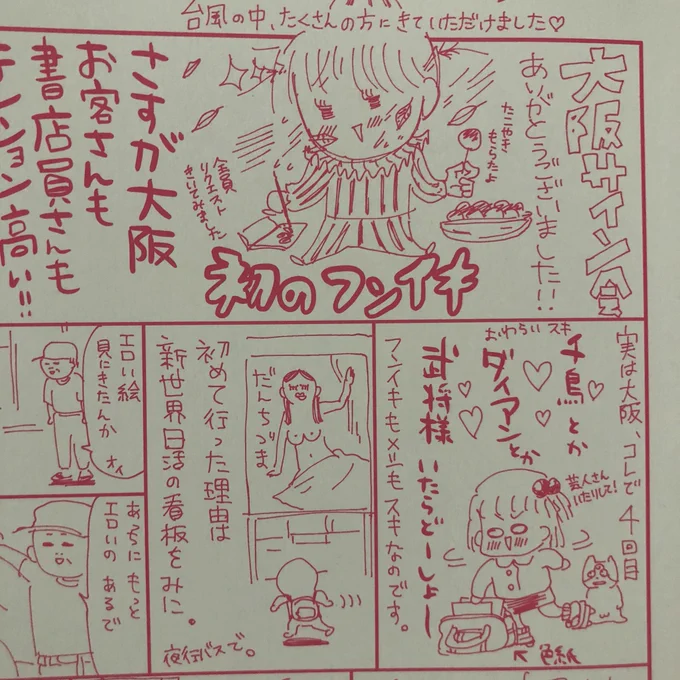 台風の中、たくさんの方にきていただけました♡
大阪サイン会
ありがとうございました!!
たこやき
もらたよ
全員
リクエスト
きいてみました
初のフンイキ
さすが大阪
お客さんも
書店員さんも
テンション高い!!
実は大阪、コレで4回目
おわらいスキ
千鳥とか
ダイアンとか
武将様
いたらどーしょー
芸人さん
いたりして!
フンイキもメシもスキなのです。
色紙
だんちづま
初めて行った理由は
新世界日活の看板をみに。
夜行バスで。
エロい絵
見にきたんか
オイ
あっちにもっと
エロいのあるで